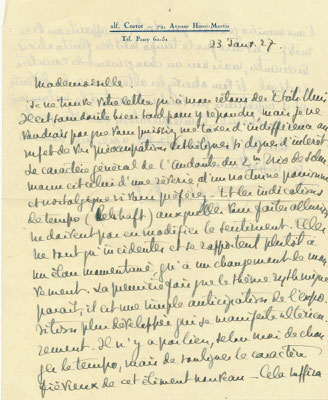 alf. Cortot — 72, Avenue Henri-Martin
Tél. Passy
23 Janv. 27
Mademoiselle
Je ne trouve votre lettre qu'à mon retour des États Unis
Il est sans doute bien tard pour y répondre, mais je ne
voudrais pas que vous puissiez me taxer d'indifférence au
sujet de vos préoccupations esthétiques si dignes d'intérêt
Le caractère général de l'Andante du 2me Trio de Schu
mann est celui d'une rêverie, d'un nocturne passionné
et nostalgique si vous préférez. Et les indications
de tempo (Lebhaft) auxquelles vous faites allusion
ne doivent pas en modifier le sentiment. Elles
ne sont qu'incidentes et se rapportent plutôt à
un élan momentané, qu'à un changement de mou
vement. La première fois que le thème rythmique
parait, il est une simple anticipation de l'expo
sition plus développée qui se manifeste ultérieu
rement. Il n'y a pas lieu, selon moi de chan
ger le tempo, mais de souligner le caractère
fiévreux de cet élément nouveau — Cela suffira